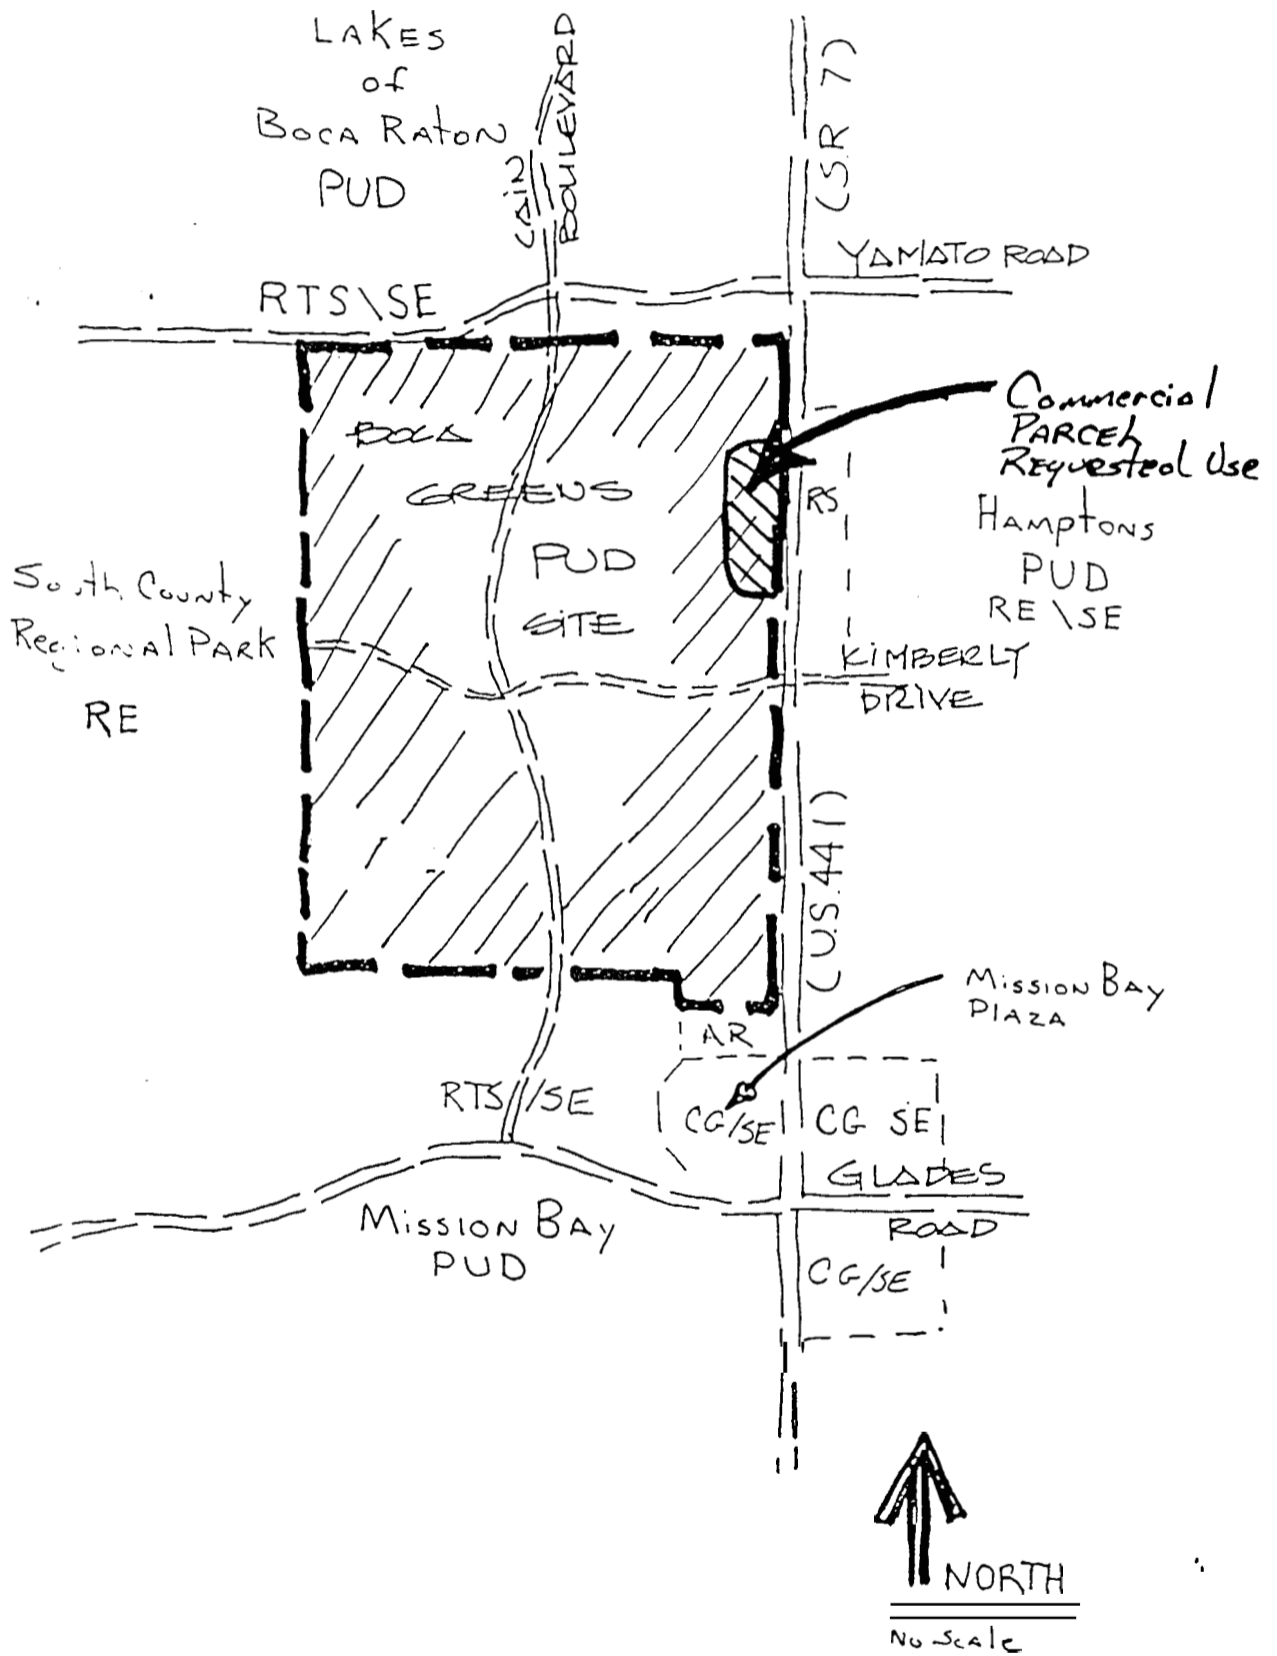 LAKES
of
BOCA RATON
PUD
CAIN
BOULEVARD
(S.R 7)
YAMATO ROAD
RTS\SE
Commercial
PARCEL
Requested Use
BOCA
GREENS
PUD
SITE
RS
Hamptons
PUD
RE\SE
South County
Regional PARK
RE
KIMBERLY
DRIVE
(U.S. 441)
Mission Bay
PLAZA
AR
RTS/SE
CG/SE
CG SE
GLADES
ROAD
Mission Bay
PUD
CG/SE
NORTH
No Scale